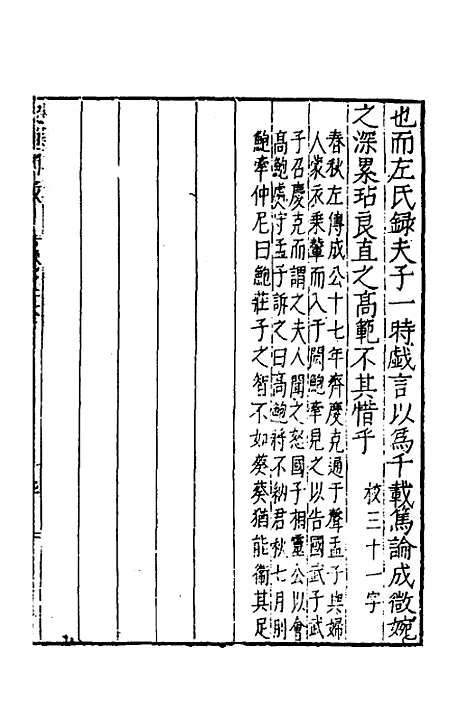 也而左氏録夫子一時戯言以爲千載篤論成微婉
之深累玷良直之高範不其惜乎　校三十一字
春秋左傳成公十七年齊慶克通于聲孟子與婦
人蒙衣乘輦而入于閎鮑牽見之以告國武子武
子召慶克而謂之夫人聞之怒國子相靈公以會
高鮑處守孟子訴之曰高鮑將不納君秋七月刖
鮑牽仲尼曰鮑莊子之智不如葵葵猶能衞其足